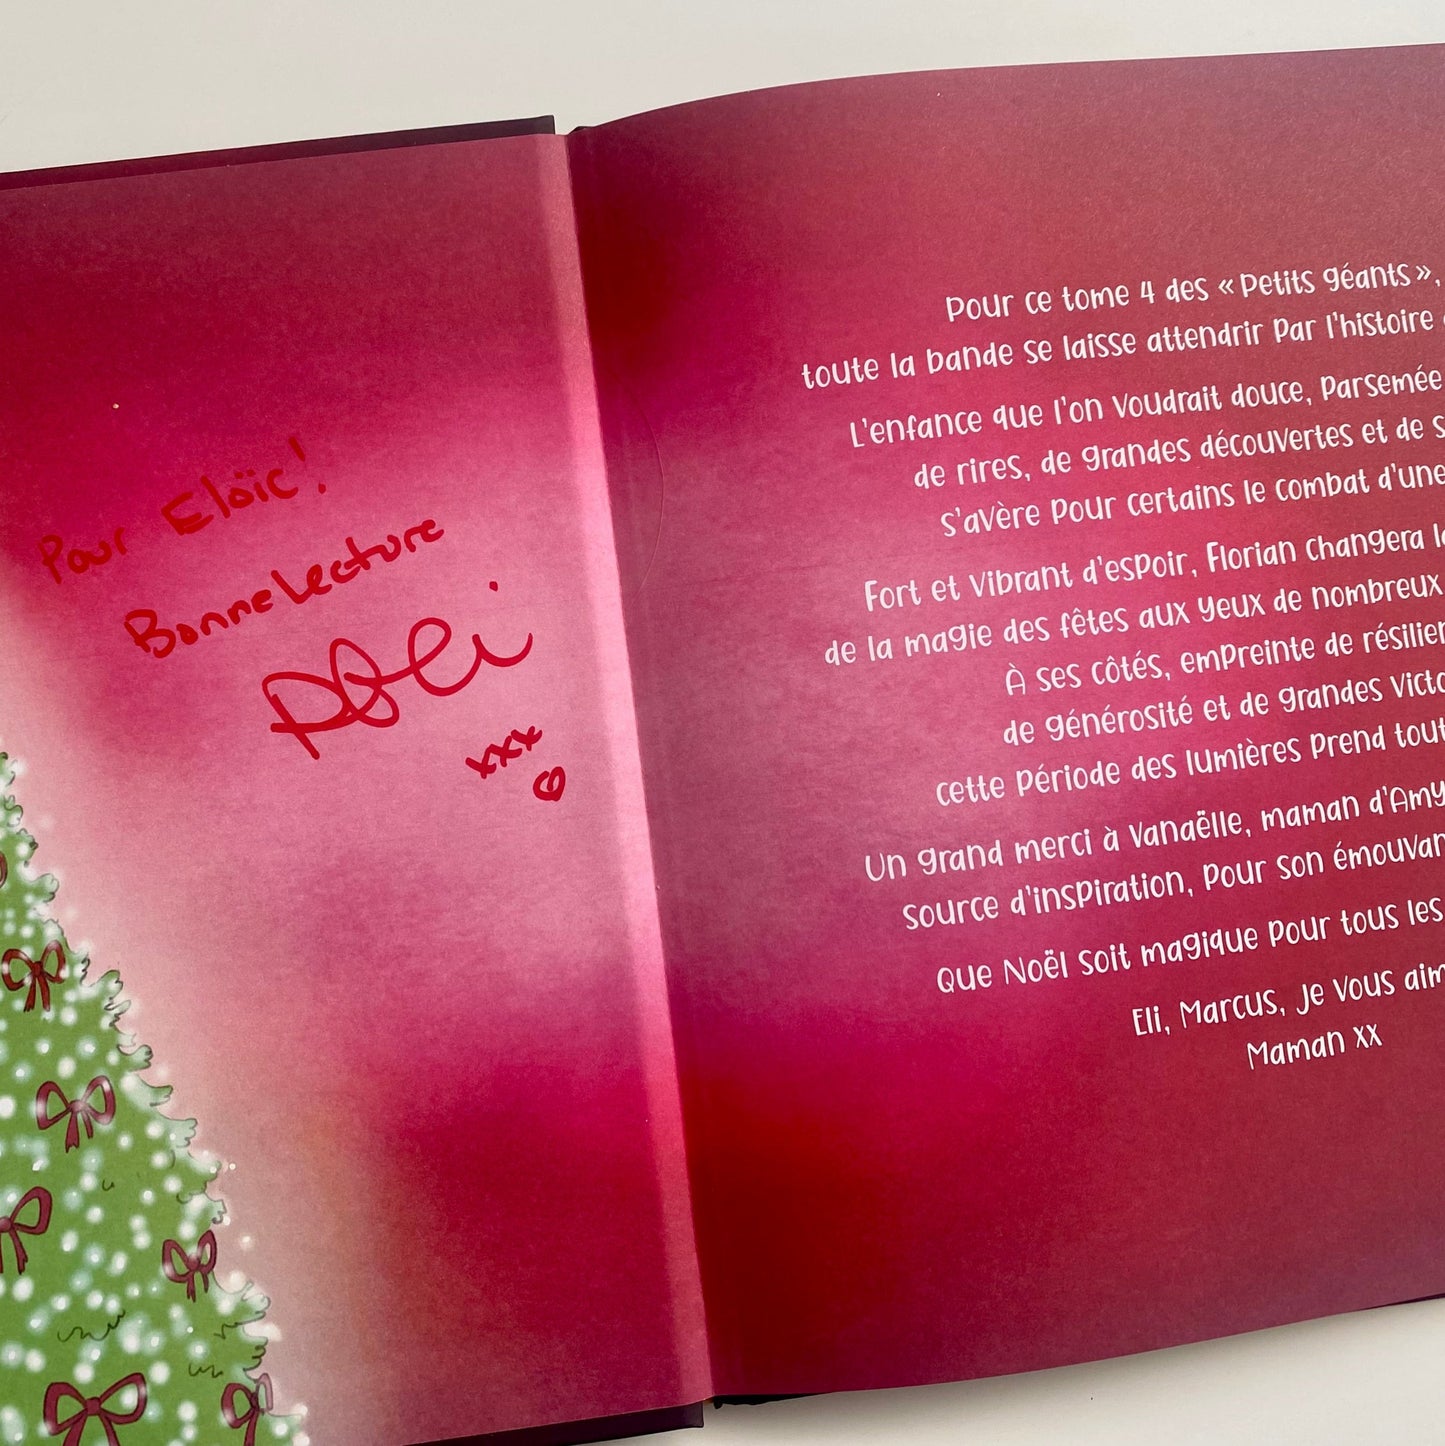 Pour Eloïc!
Bonne Lecture
xxx
Pour ce tome 4 des « Petits géants »,
toute la bande se laisse attendrir par l'histoire
L'enfance que l'on voudrait douce, parsemée
de rires, de grandes découvertes et de s
s'avère pour certains le combat d'une
Fort et vibrant d'espoir, Florian changera l
de la magie des fêtes aux yeux de nombreux
À ses côtés, empreinte de résilien
de générosité et de grandes victo
cette période des lumières prend tout
Un grand merci à Vanaëlle, maman d'Amy
source d'inspiration, pour son émouvan
Que Noël soit magique pour tous les
Eli, Marcus, je vous aim
Maman xx